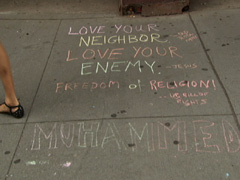 LOVE YOUR
NEIGHBOR
LOVE YOUR
ENEMY.
FREEDOM of RELIGION!
RIGHTS
MUHAMMED